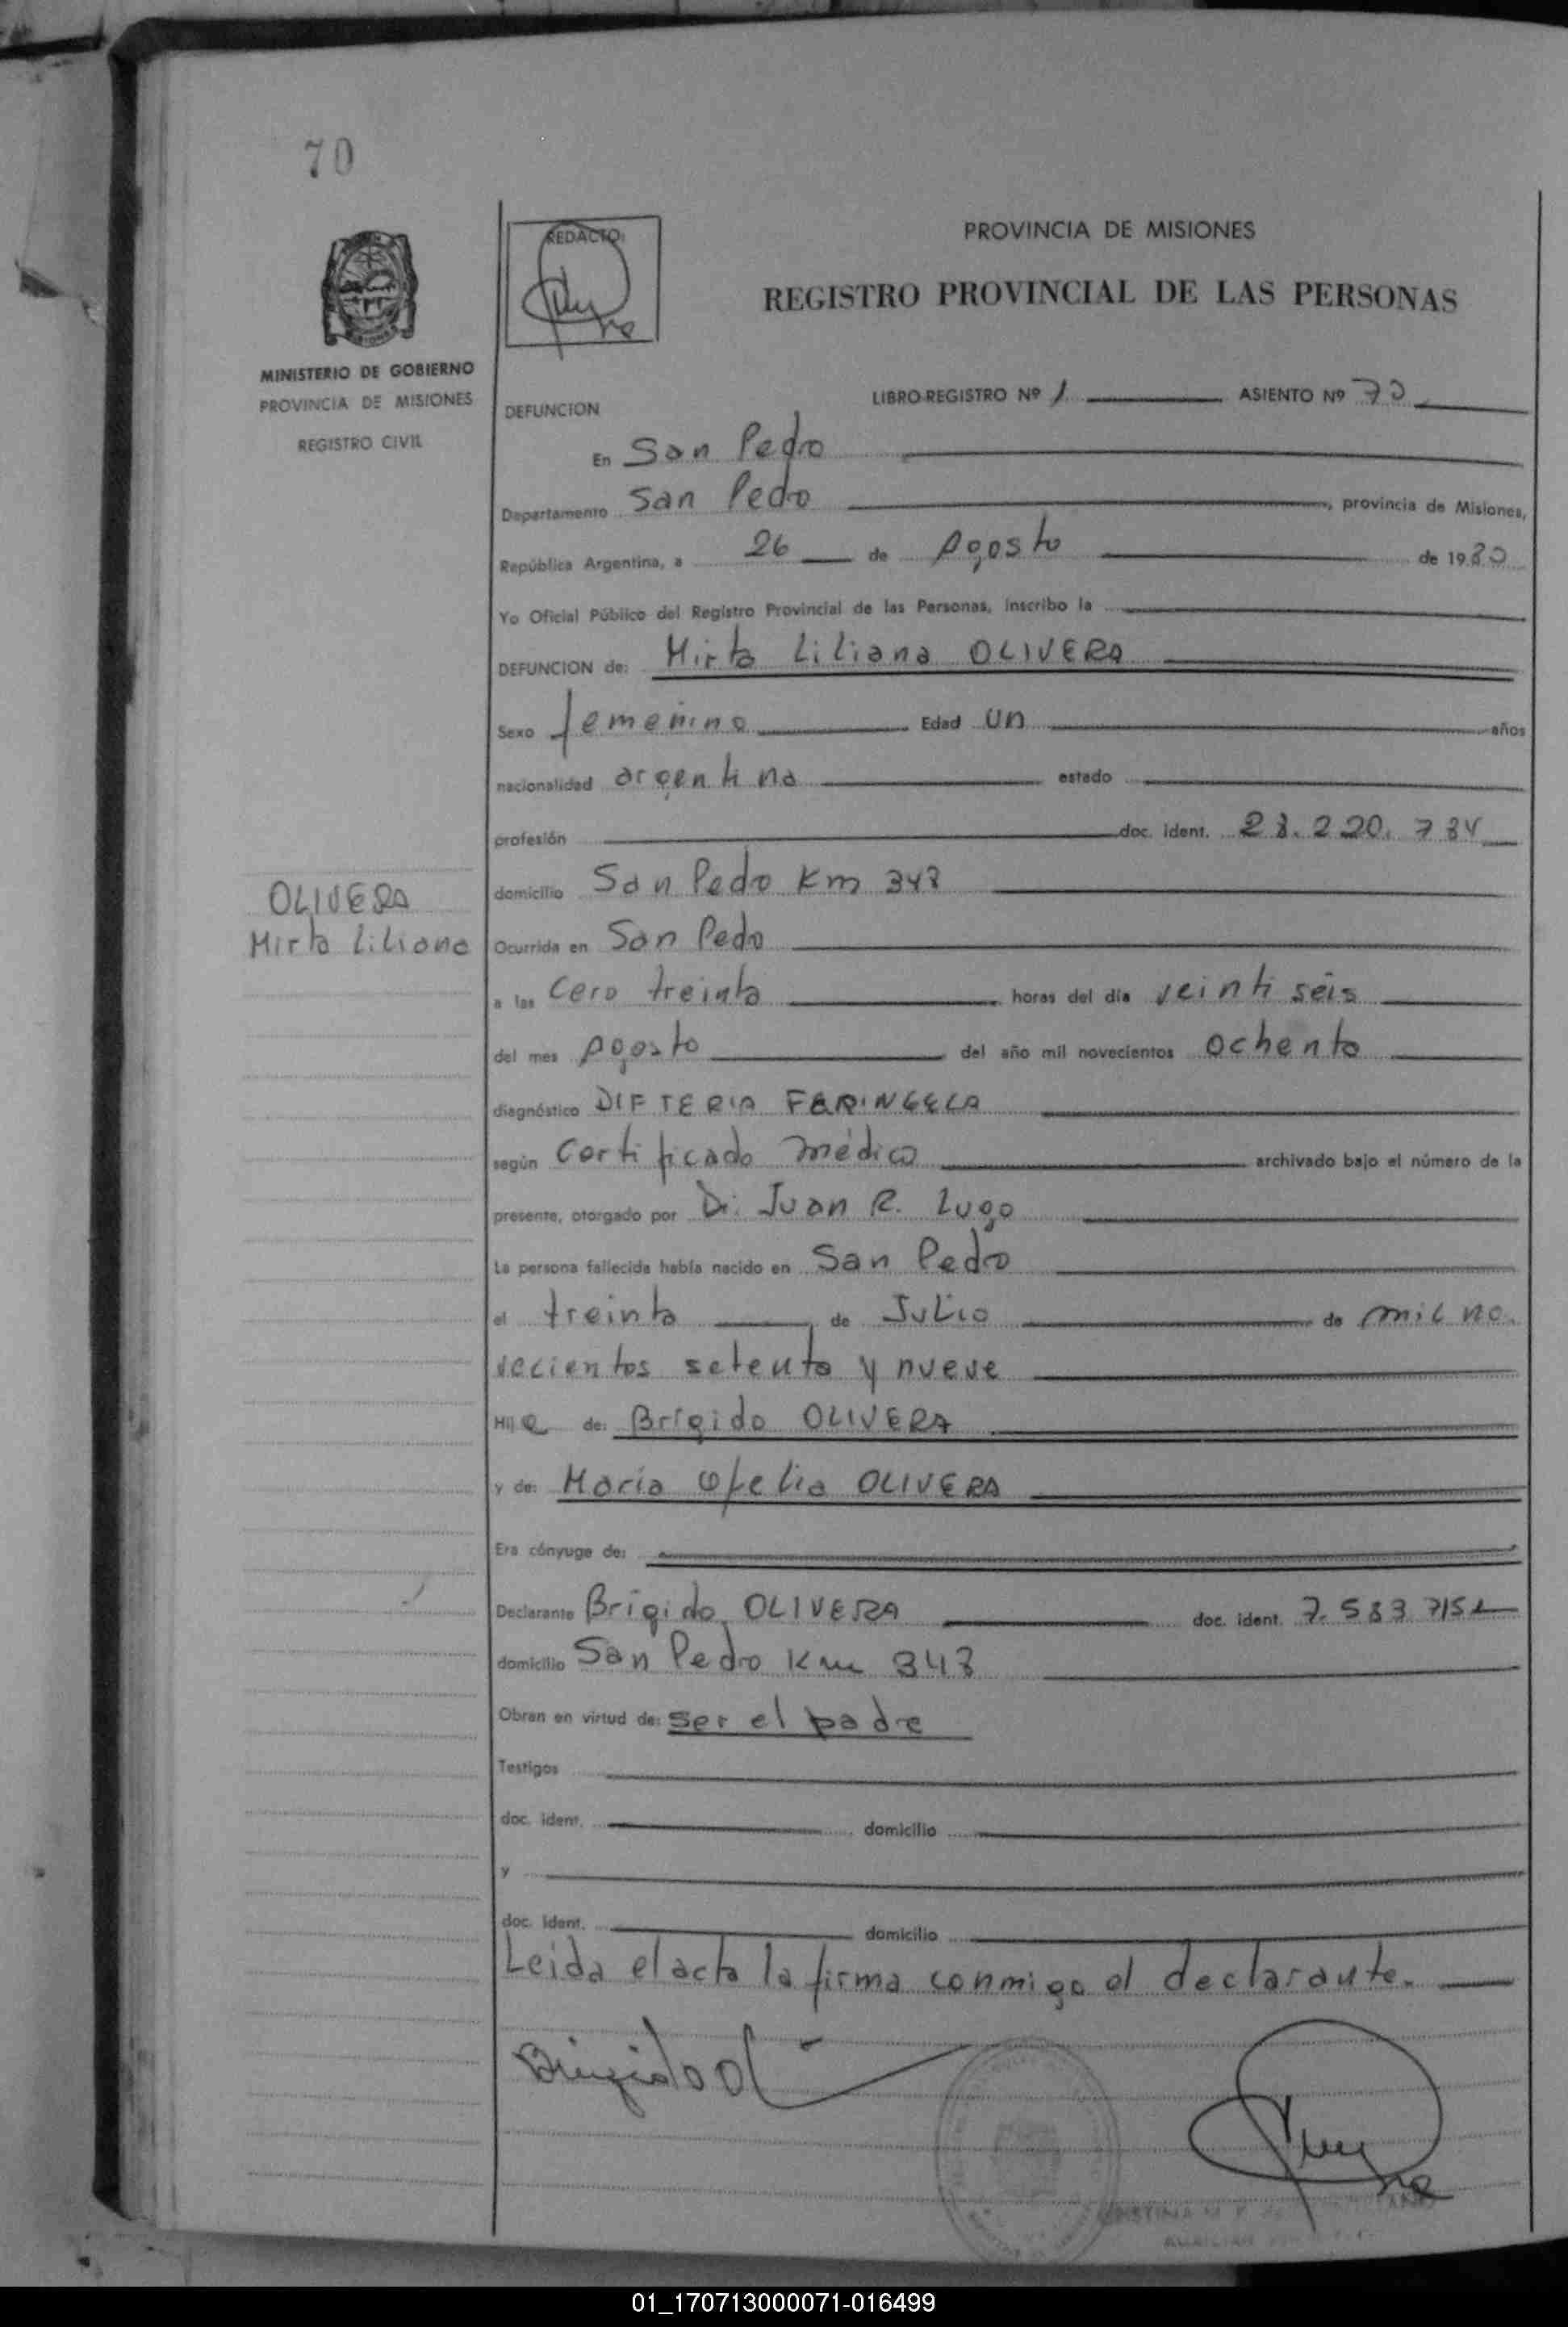 70
REDACTO:
PROVINCIA DE MISIONES
REGISTRO PROVINCIAL DE LAS PERSONAS
MINISTERIO DE GOBIERNO
PROVINCIA DE MISIONES
REGISTRO CIVIL
LIBRO-REGISTRO Nº 1 ASIENTO Nº 70
DEFUNCION
En San Pedro
Departamento San Pedro, provincia de Misiones,
República Argentina, a 26 de Agosto de 1980
Yo Oficial Público del Registro Provincial de las Personas, inscribo la
DEFUNCION de: Mirta Liliana OLIVERA
Sexo femenino Edad un años
nacionalidad argentina estado
profesión doc. ident. 28.220.784
OLIVERA
Mirta Liliana
domicilio San Pedro Km 348
Ocurrida en San Pedro
a las Cero treinta horas del día veinti seis
del mes Agosto del año mil novecientos ochenta
diagnóstico DIFTERIA FARINGEA
según Certificado médico archivado bajo el número de la
presente, otorgado por Dr. Juan R. Lugo
La persona fallecida había nacido en San Pedro
el treinta de Julio de mil no.
vecientos setenta y nueve
Hij a de: Brígido OLIVERA
y de: María Ofelia OLIVERA
Era cónyuge de:
Declarante Brígido OLIVERA doc. ident.
domicilio San Pedro Km 348
Obran en virtud de: ser el padre
Testigos
doc. ident. domicilio
y
doc. ident. domicilio
Leida el acta la firma conmigo el declarante.
01_170713000071-016499